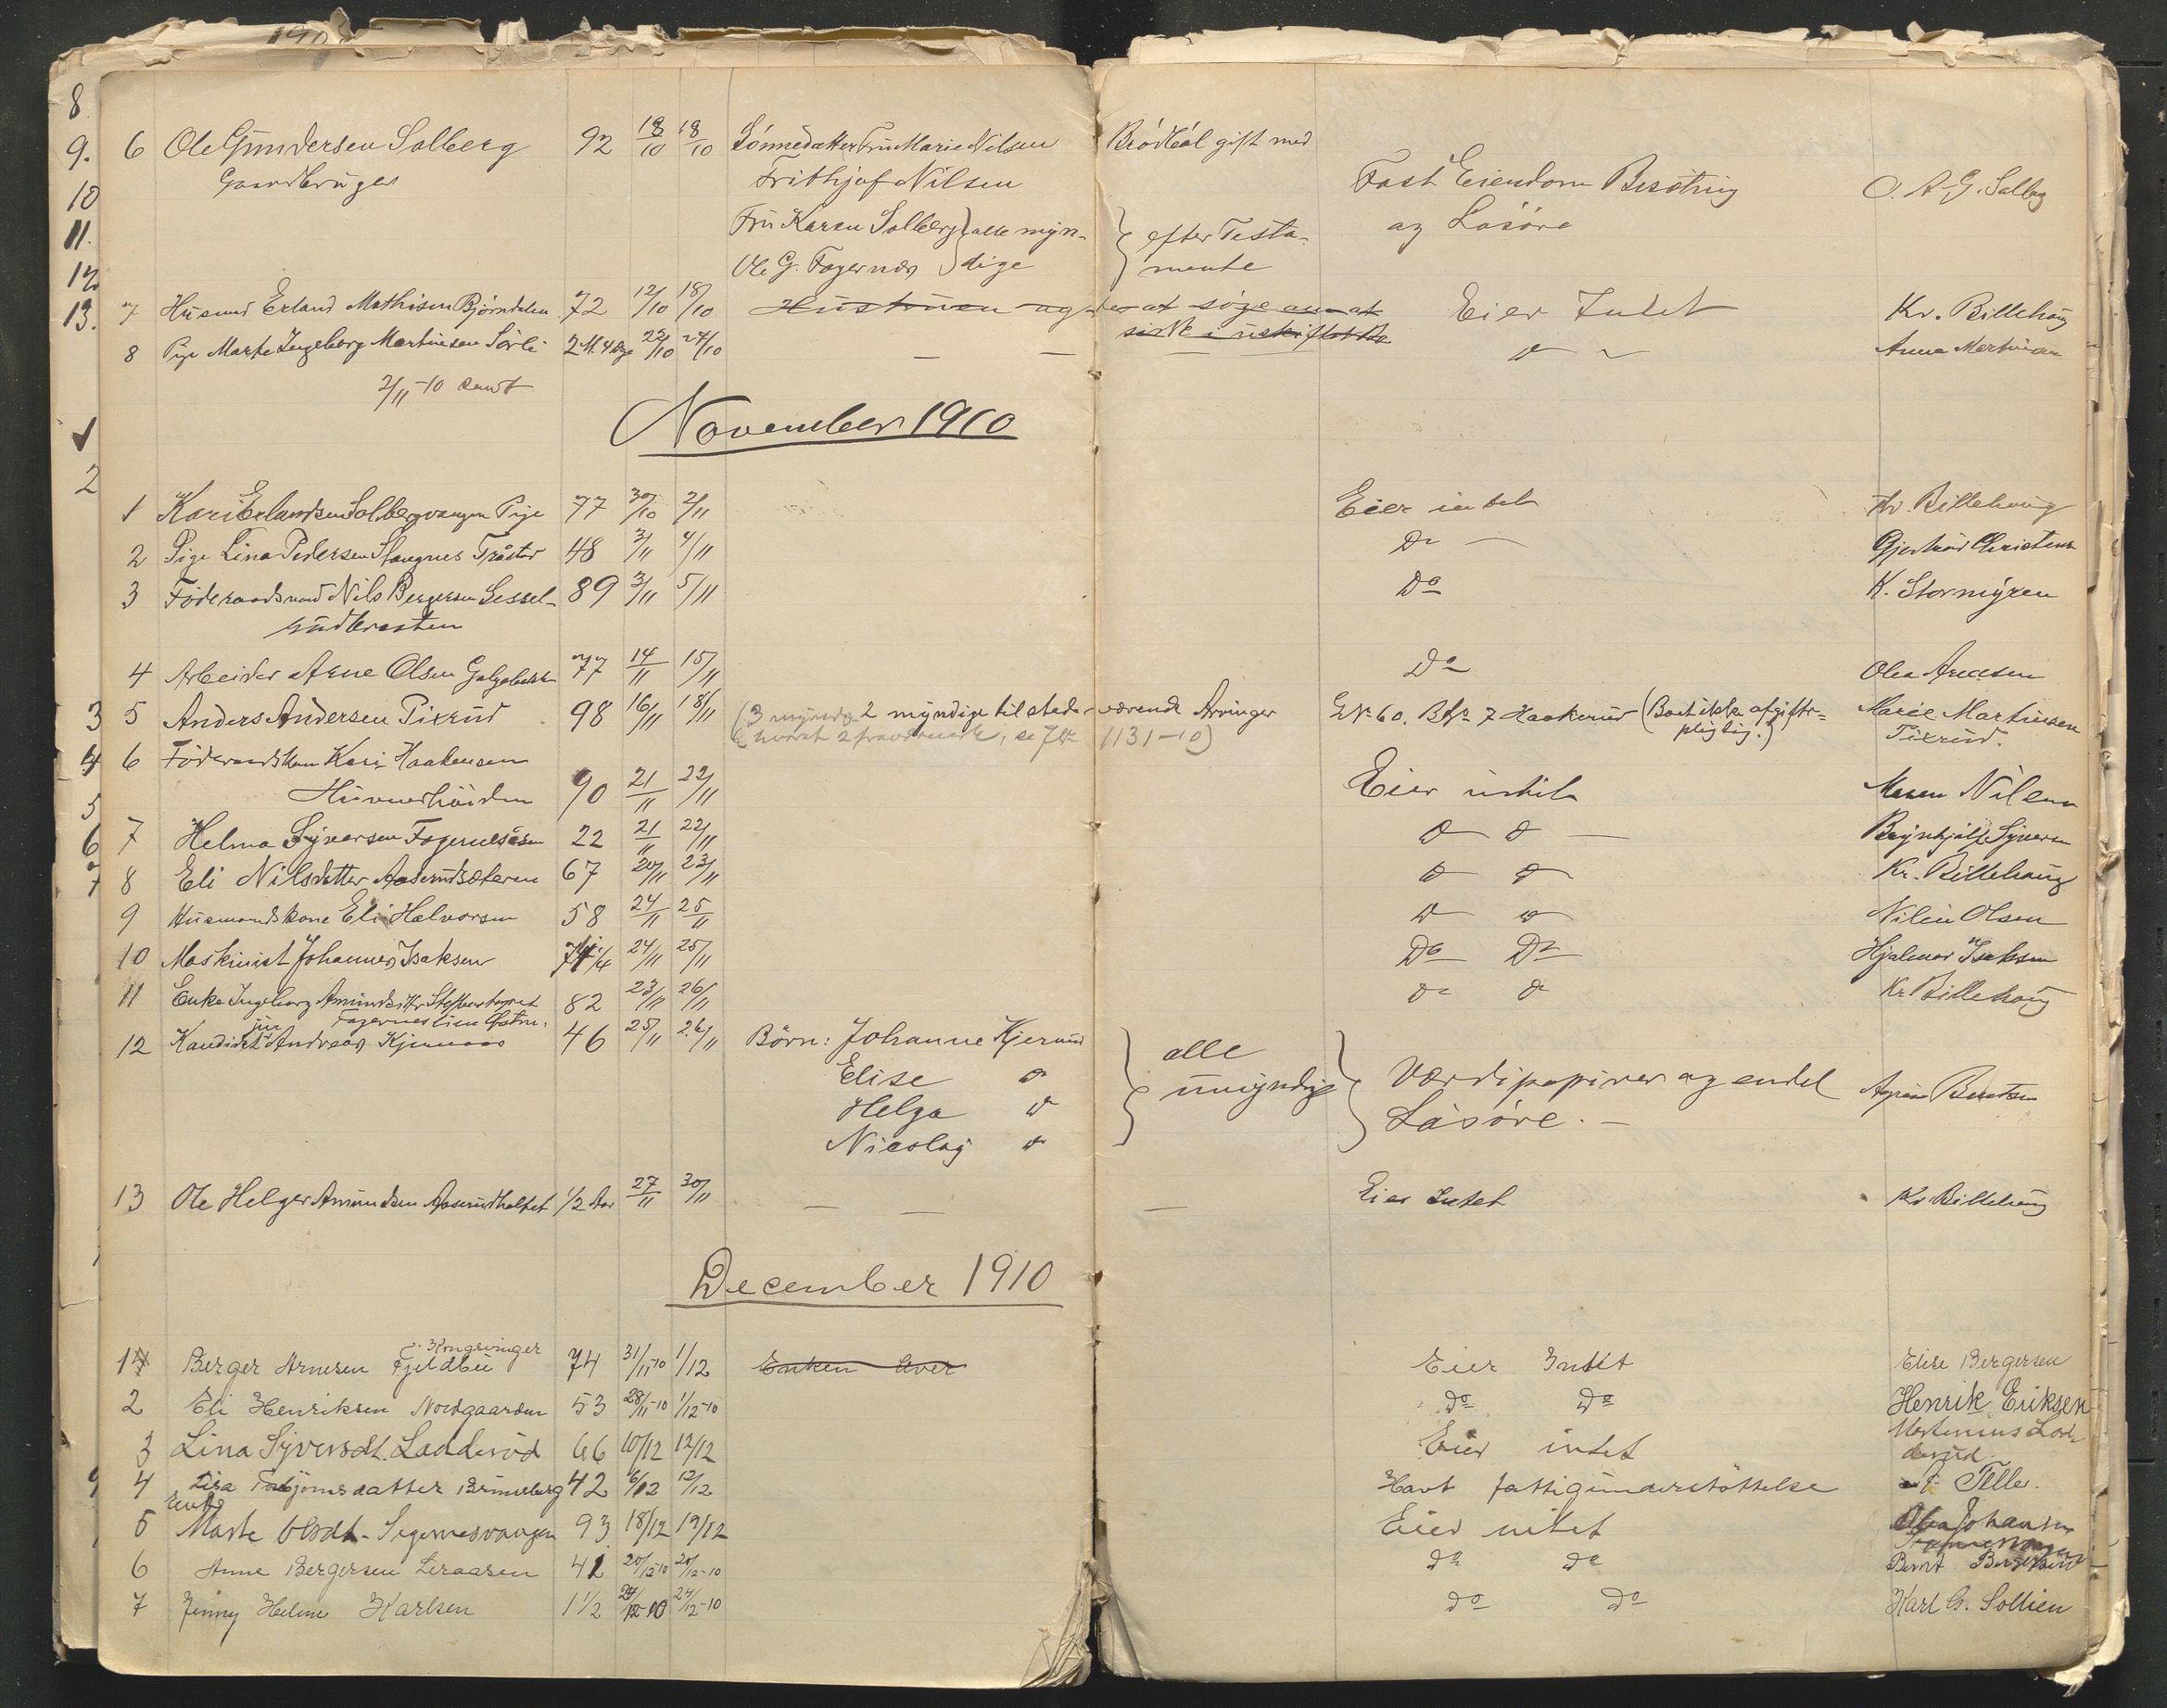 8
9. 6 Ole Gundersen Solberg 92 18/10 18/10 Sönnedatter Fru Marie Nilsen Brödböl gift med
10 Gaardbruger Frithjof Nilsen Fast Eiendom Besætning O. A. G. Solberg
11. Fru Karen Solberg } alle myn- } efter Testa- og Lösöre
12 Ole G. Fagernæs } dige } mente
13. 7 Husmd Erland Mathisen Björndalen 72 12/10 18/10 Hustruen agter at söge om at Eier Intet Kr. Billehaug
sidde i uskiftet Bo
8 Pige Marte Ingeborg Martinsen Sörli 2 M. 4 Dge 22/10 24/10 — — — Do ~ Anna Martinsen
2/11-10 sendt
November 1910
1 Kari Erlandsen Solbergvangen Pige 77 30/10 2/11 Eier intet Kr. Billehaug
2 Pige Lina Pedersen Stangnes Tråstad 48 3/11 4/11 Do — Gjertrud Christensen
3 Föderaadsmand Nils Bergersen Sessel- 89 3/11 5/11 Do K. Stormyren
rudbraaten
4 Arbeider Arne Olsen Galgebakken 77 14/11 15/11 Do Olea Arnesen
5 Anders Andersen Pixrud 98 16/11 18/11 (3 myndg 2 myndige tilstede- værende Arvinger GNo 60. BNo 7 Haakerud (Boet ikke afgifts= Marie Martinsen
(hvoraf 2 fraværende, se J No 1131-10) pligtig.) Pixrud.
6 Föderaadskone Kari Haakensen
Hunnerhöiden 90 21/11 22/11 Eier intet Maren Nilsen
7 Helma Syversen Fagernesåsen 22 21/11 22/11 Do Do — Brynhjulf Syversen
8 Eli Nilsdatter Aaserudsæteren 67 20/11 23/11 Do Do Kr. Billehaug
9 Husmandskone Eli Halvorsen 58 24/11 25/11 Do Do Nilia Olsen
10 Maskinist Johannes Isaksen 24/11 25/11 Do Do Hjalmar Isaksen
11 Enke Ingeborg Amundsdtr 82 23/11 26/11 Do Do Kr Billehaug
jur. Fagerneslien Östre.
12 Kandidat Andreas 46 25/11 26/11 Börn: Johanne Kjerrud } alle } Værdipapirer og endel
Elise Do umyndige
Helga Do Lösöre. —
Nicolay Do
13 Ole Helger Amundsen Aaserudholtet 1/2 Aar 27/11 30/11 — — — Eier Intet Kr Billehaug
December 1910
1 Berger Arnesen Fjeldbu p. Kongsvinger 74 31/11-10 1/12 Enken lever Eier Intet Elise Bergersen
2 Eli Henriksen Nordgaarden 53 28/11-10 1/12-10 Do Do Henrik Eriksen
3 Lina Syversdt. Lauderud 66 10/12 12/12 Eier intet Martinius Lau-
derud
4 Lisa Torbjörnsdatter Brunsberg 42 6/12 12/12 Havt fattigunderstöttelse Telle.
Enke
5 Marte Olsdt. Sigernesvangen 93 18/12 19/12 Eier intet Olea Johansen
6 Anne Bergersen Leraasen 41 20/12-10 20/12-10 Do Do Bernt Bergersen
7 Jenny Helene Karlsen 1 1/2 24/12-10 24/12-10 Do Do Karl G. Sollien